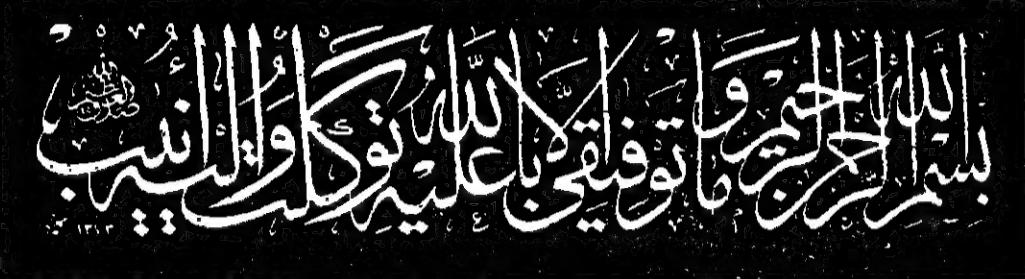 بسم الله الرحمن الرحيم وما توفيقي إلا بالله عليه توكلت وإليه أنيب
١٣١٣